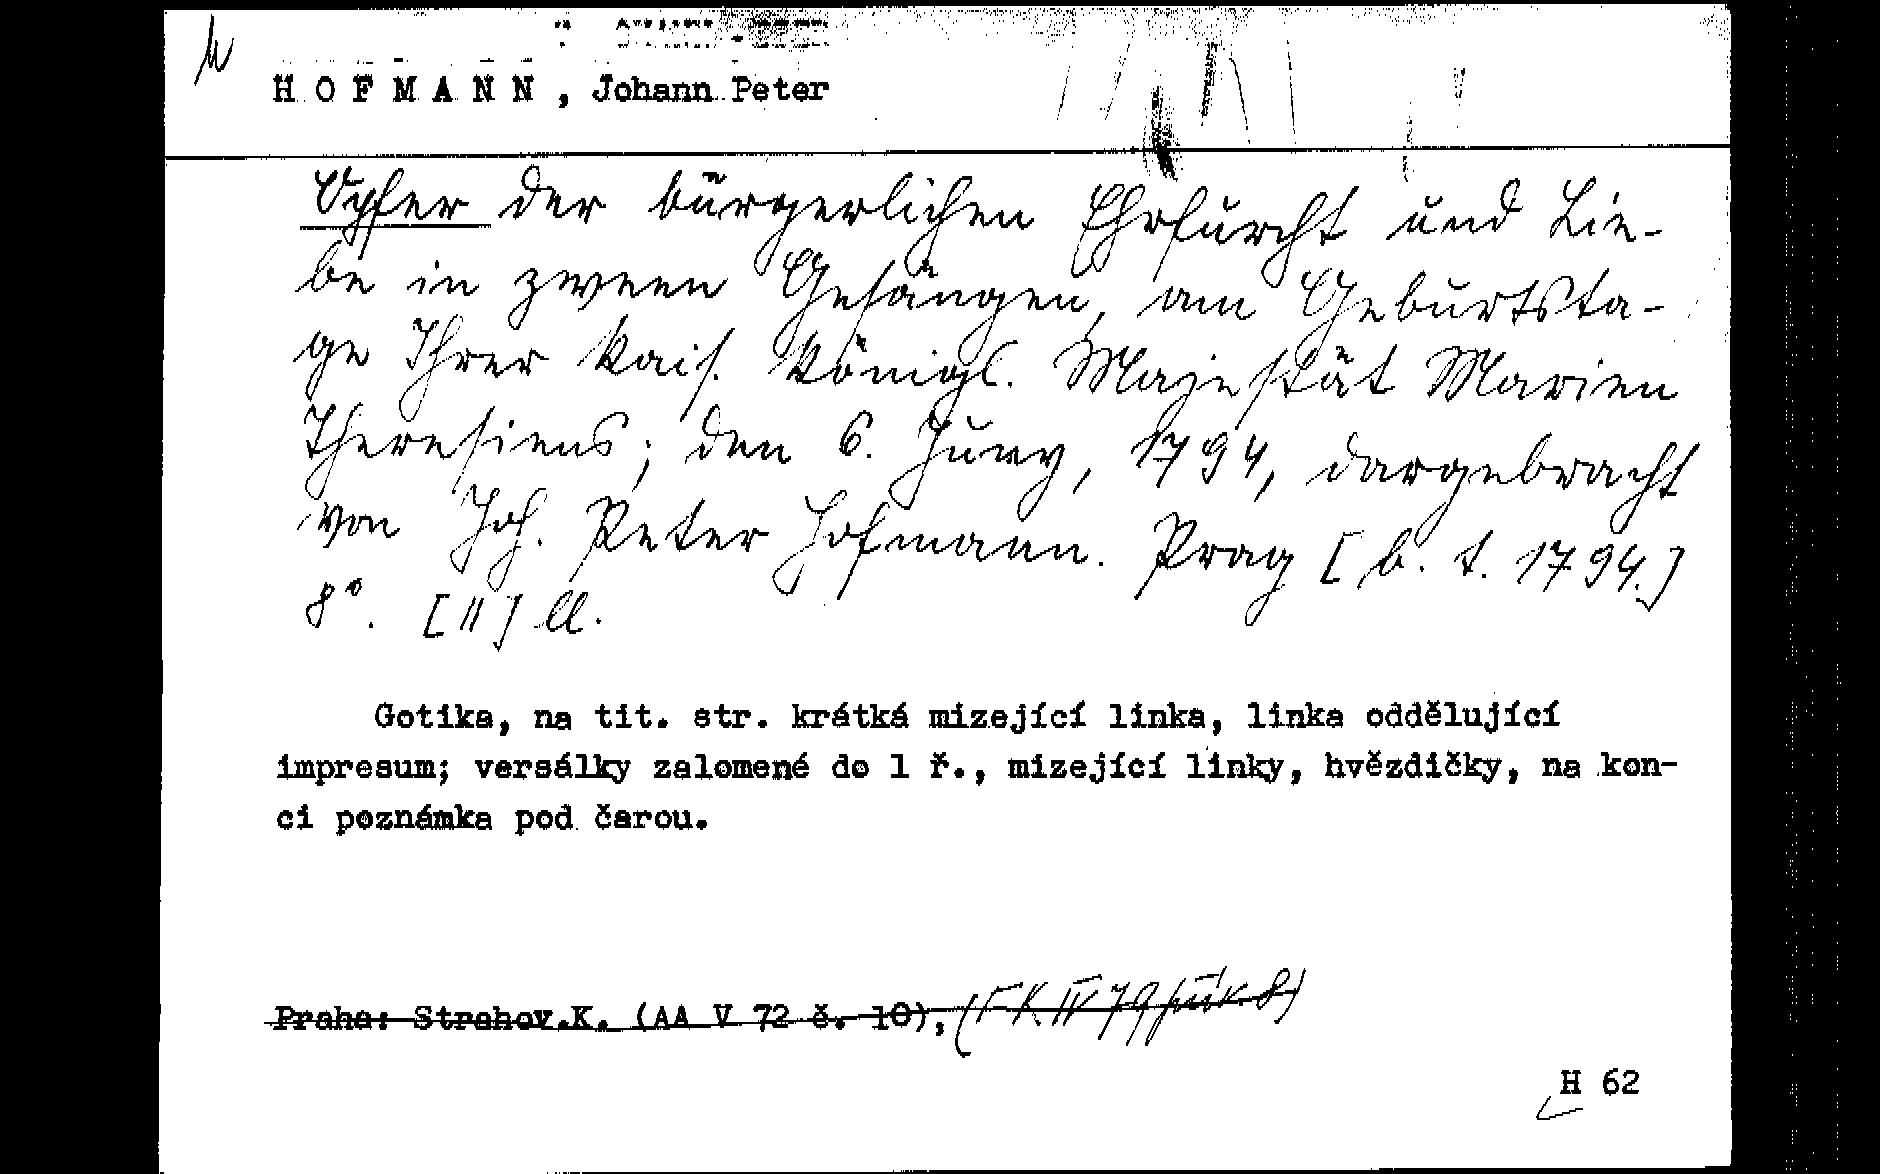 H O F M A N N , Johann Peter
Opfer der bürgerlichen Ehrfurcht und Lie-
be in zween Gesängen, am Geburtsta-
ge Ihrer kais. königl. Majestät Marien
Theresiens; den 6. Juny, 1794, dargebracht
von Joh. Peter Hofmann. Prag [b. t. 1794.]
8°. [II] ll.
Gotika, na tit. str. krátká mizející linka, linka oddělující
impresum; versálky zalomené do 1 ř., mizející linky, hvězdičky, na kon-
ci poznámka pod čarou.
Praha: Strahov.K. (AA V 72 č. 10), (FK IV 79 8)
H 62